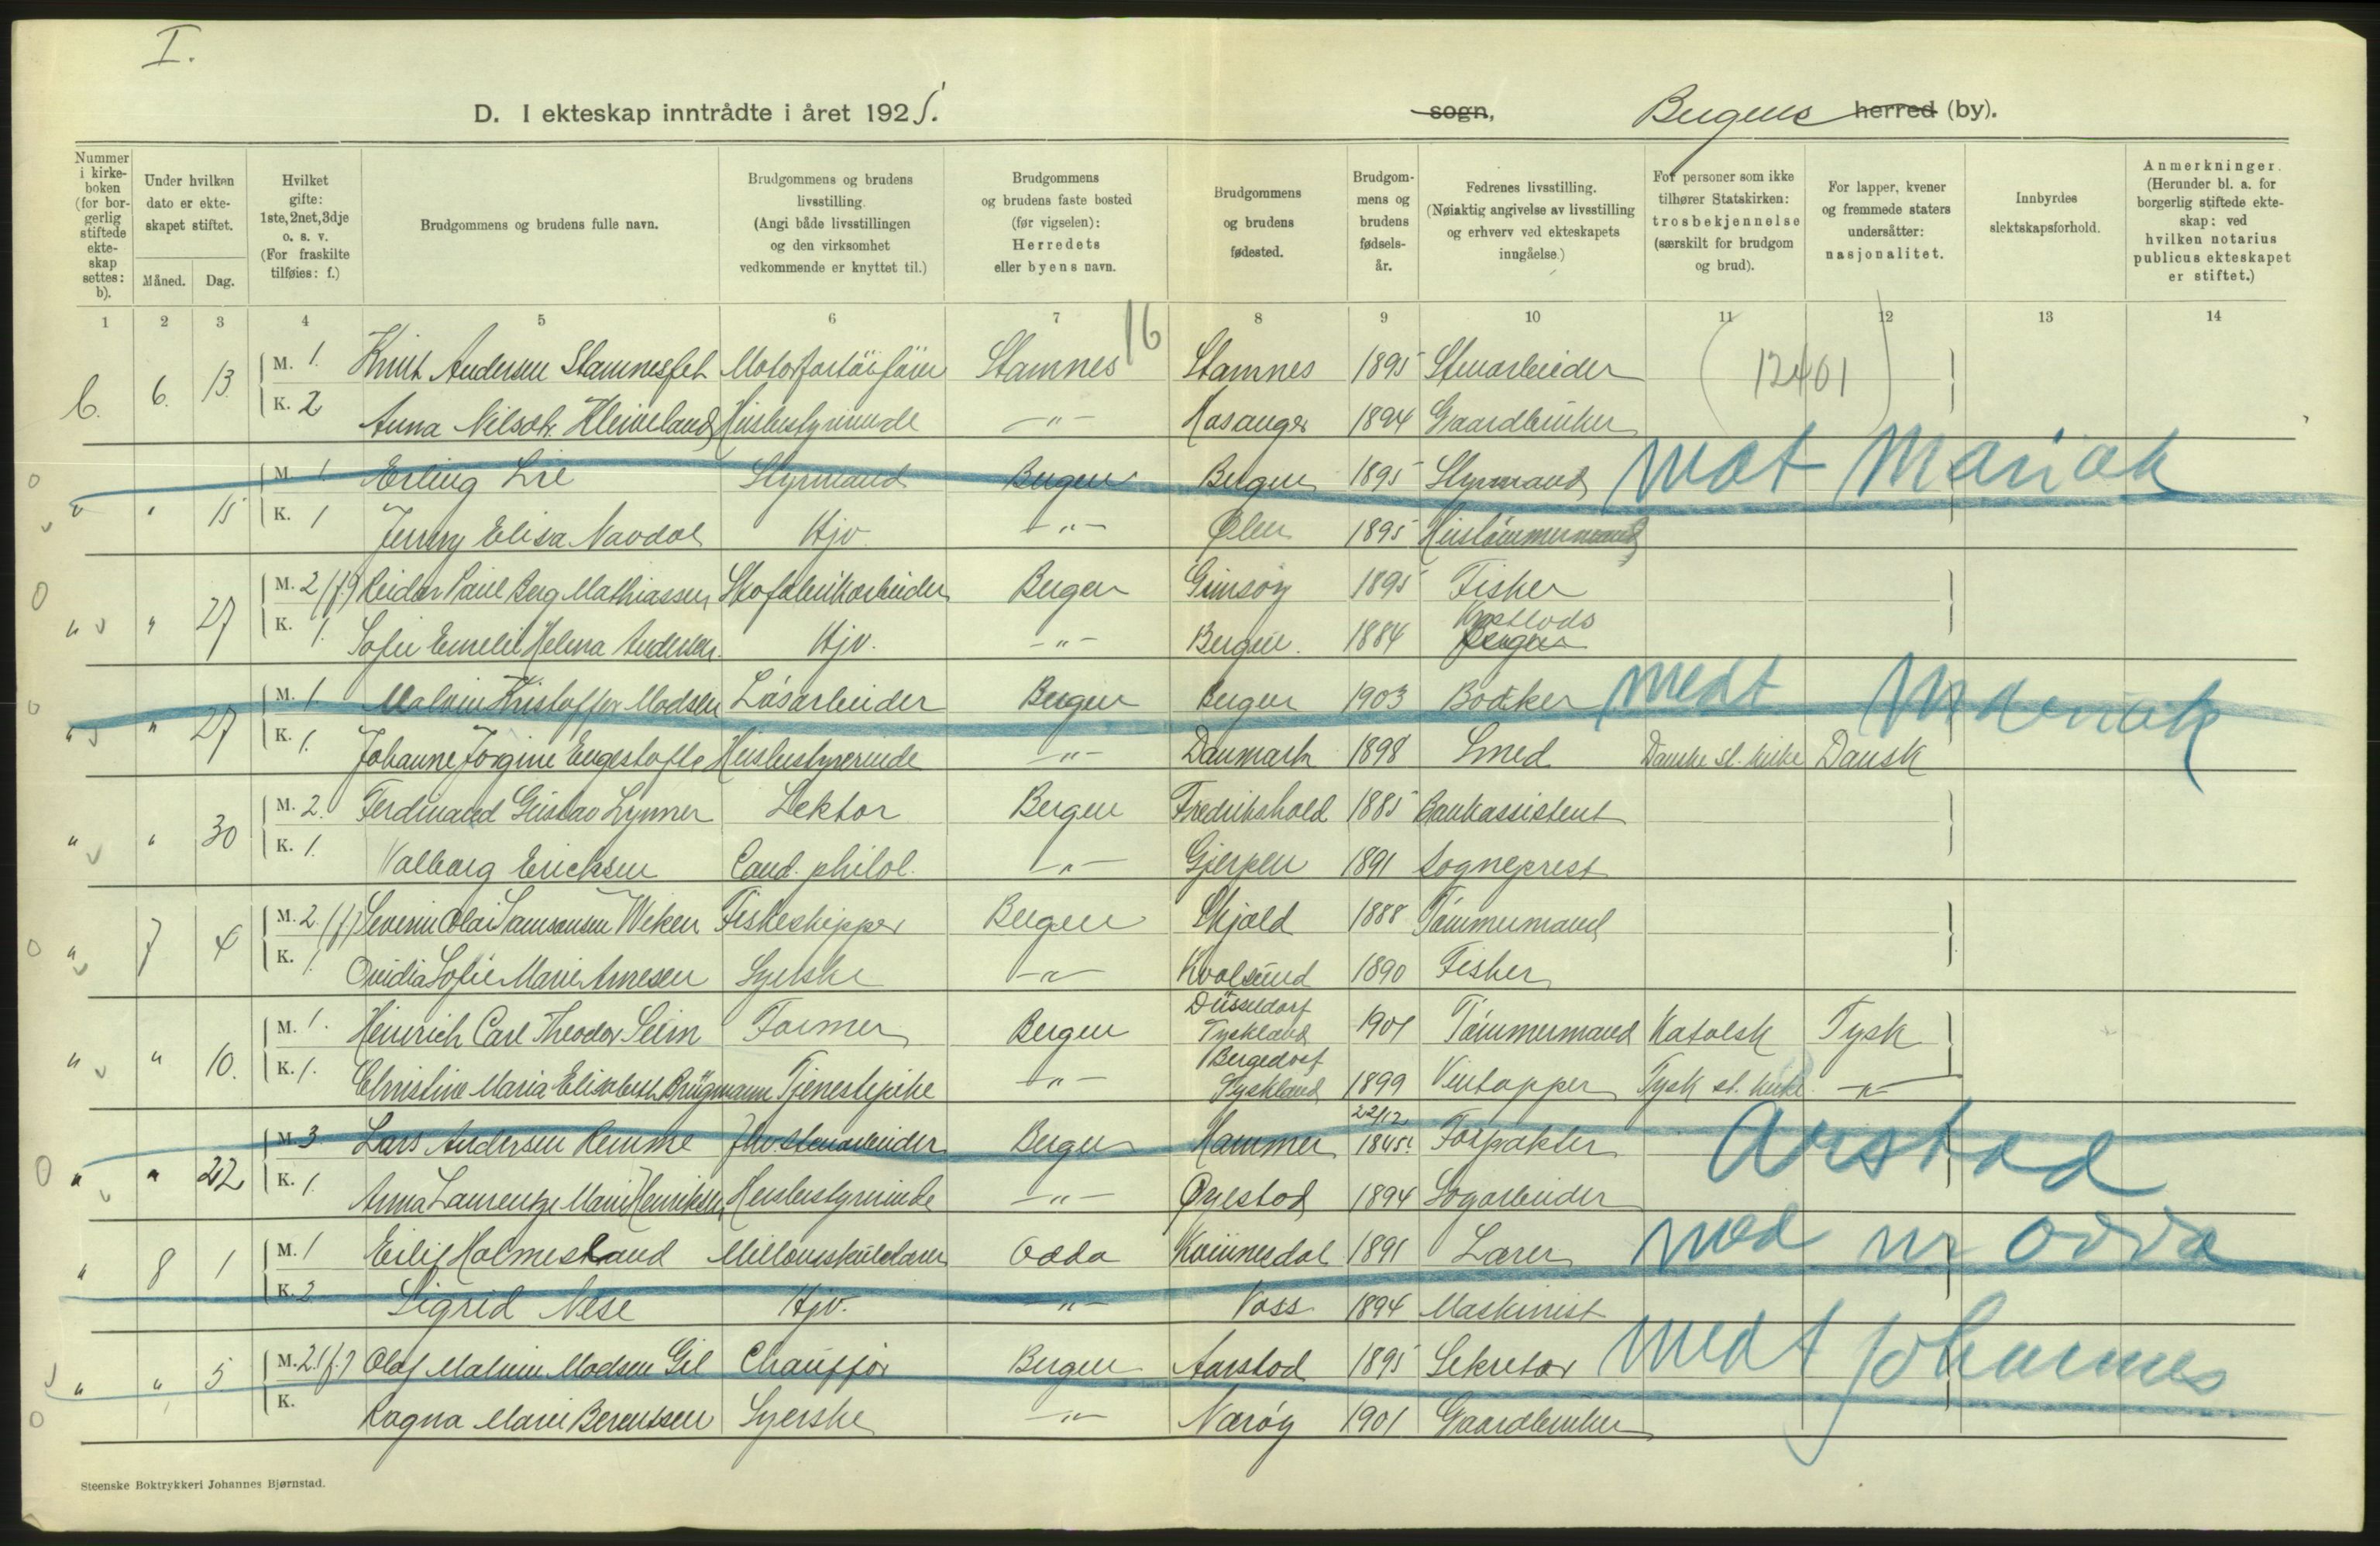 I.
D. I ekteskap inntrådte i året 1925.
sogn, Bergens herred (by).
Nummer i kirke-boken (for bor-gerlig stiftede ekte-skap settes: b).
Under hvilken dato er ekte-skapet stiftet.
Måned. Dag.
Hvilket gifte: 1ste, 2net, 3dje o. s. v. (For fraskilte tilføies: f.)
Brudgommens og brudens fulle navn.
Brudgommens og brudens livsstilling. (Angi både livsstillingen og den virksomhet vedkommende er knyttet til.)
Brudgommens og brudens faste bosted (før vigselen): Herredets eller byens navn.
Brudgommens og brudens fødested.
Brudgom-mens og brudens fødsels-år.
Fedrenes livsstilling. (Nøiaktig angivelse av livsstilling og erhverv ved ekteskapets inngåelse.)
For personer som ikke tilhører Statskirken: trosbekjennelse (særskilt for brudgom og brud).
For lapper, kvener og fremmede staters undersåtter: nasjonalitet.
Innbyrdes slektskapsforhold.
Anmerkninger. (Herunder bl. a. for borgerlig stiftede ekte-skap: ved hvilken notarius publicus ekteskapet er stiftet.)
1 2 3 4 5 6 7 8 9 10 11 12 13 14
16
b. 6. 13. M. 1. Knut Andersen Stamnesfet Stamnes Stamnes 1895 Stenarbeider (12461)
K. 2 Anna Nilsdtr. Kleiveland Husbestyrerinde -"- Hosanger 1894 Gaardbruker
" " 15 M. 1. Erling Lie Styrmand Bergen Bergen 1895 Styrmand
K. 1 Jenny Elisa Navdal Hjv -"- Ølen 1895 Hustømmermand
" " 27 M. 2 (f.) Reidar Paul Berg Mathiassen Skofabrikarbeider Bergen Gimsøy 1895 Fisker
K. 1. Sofie Emelie Helena Andersen. Hjv. -"- Bergen. 1884 Kystlods Bergen
" " 27 M. 1. Malvin Kristoffer Madsen Løsarbeider Bergen Bergen 1903 Bødker
K. 1. Johanne Jørgine Engestofte Husbestyrerinde -"- Danmark 1898 Smed Danske st. kirke Dansk
" " 30 M. 2. Ferdinand Gustav Lynner Lektor Bergen Fredrikshald 1885 Bankassistent
K. 1. Valborg Erichsen Cand. philol. -"- Gjerpen 1891 Sogneprest
" 7 4 M. 2. (f.) Severin Olai Samsonsen Weken Fiskeskipper Bergen Skjold 1888 Tømmermand
K. 1. Ovidia Sofie Marie Arnesen Syerske -"- Kvalsund 1890 Fisker
" " 10. M. 1. Heinrich Carl Theodor Seim Former Bergen Düsseldorf Tyskland 1901 Tømmermand Katolsk Tysk
K. 1. Christine Maria Elisabeth Brügmann Tjenestepike -"- Bergedorf Tyskland 1899 Vintapper Tysk st. kirke -"-
" " 22 M. 3 Lars Andersen Remme Fhv. stenarbeider Bergen Hammer 22/12 1845. Forpakter Årstad
K. 1. Anna Laurentze Marie Henriksen Husbestyrerinde -"- Øyestad 1894 Sagarbeider
" 8 1 M. 1 Eilif Holmesland Mellomskolelærer Odda Kvinesdal 1891 Lærer med nr Odda
K. 2 Sigrid Nese Hjv. -"- Voss 1894 Maskinist
" " 5 M. 2. (f.) Olaf Malvin Madsen Gil Chauffør Bergen Aarstad 1895 Sekretær medt Johannes
K. Ragna Marie Berentsen Syerske -"- Nærøy 1901 Gaardbruker
Steenske Boktrykkeri Johannes Bjørnstad.